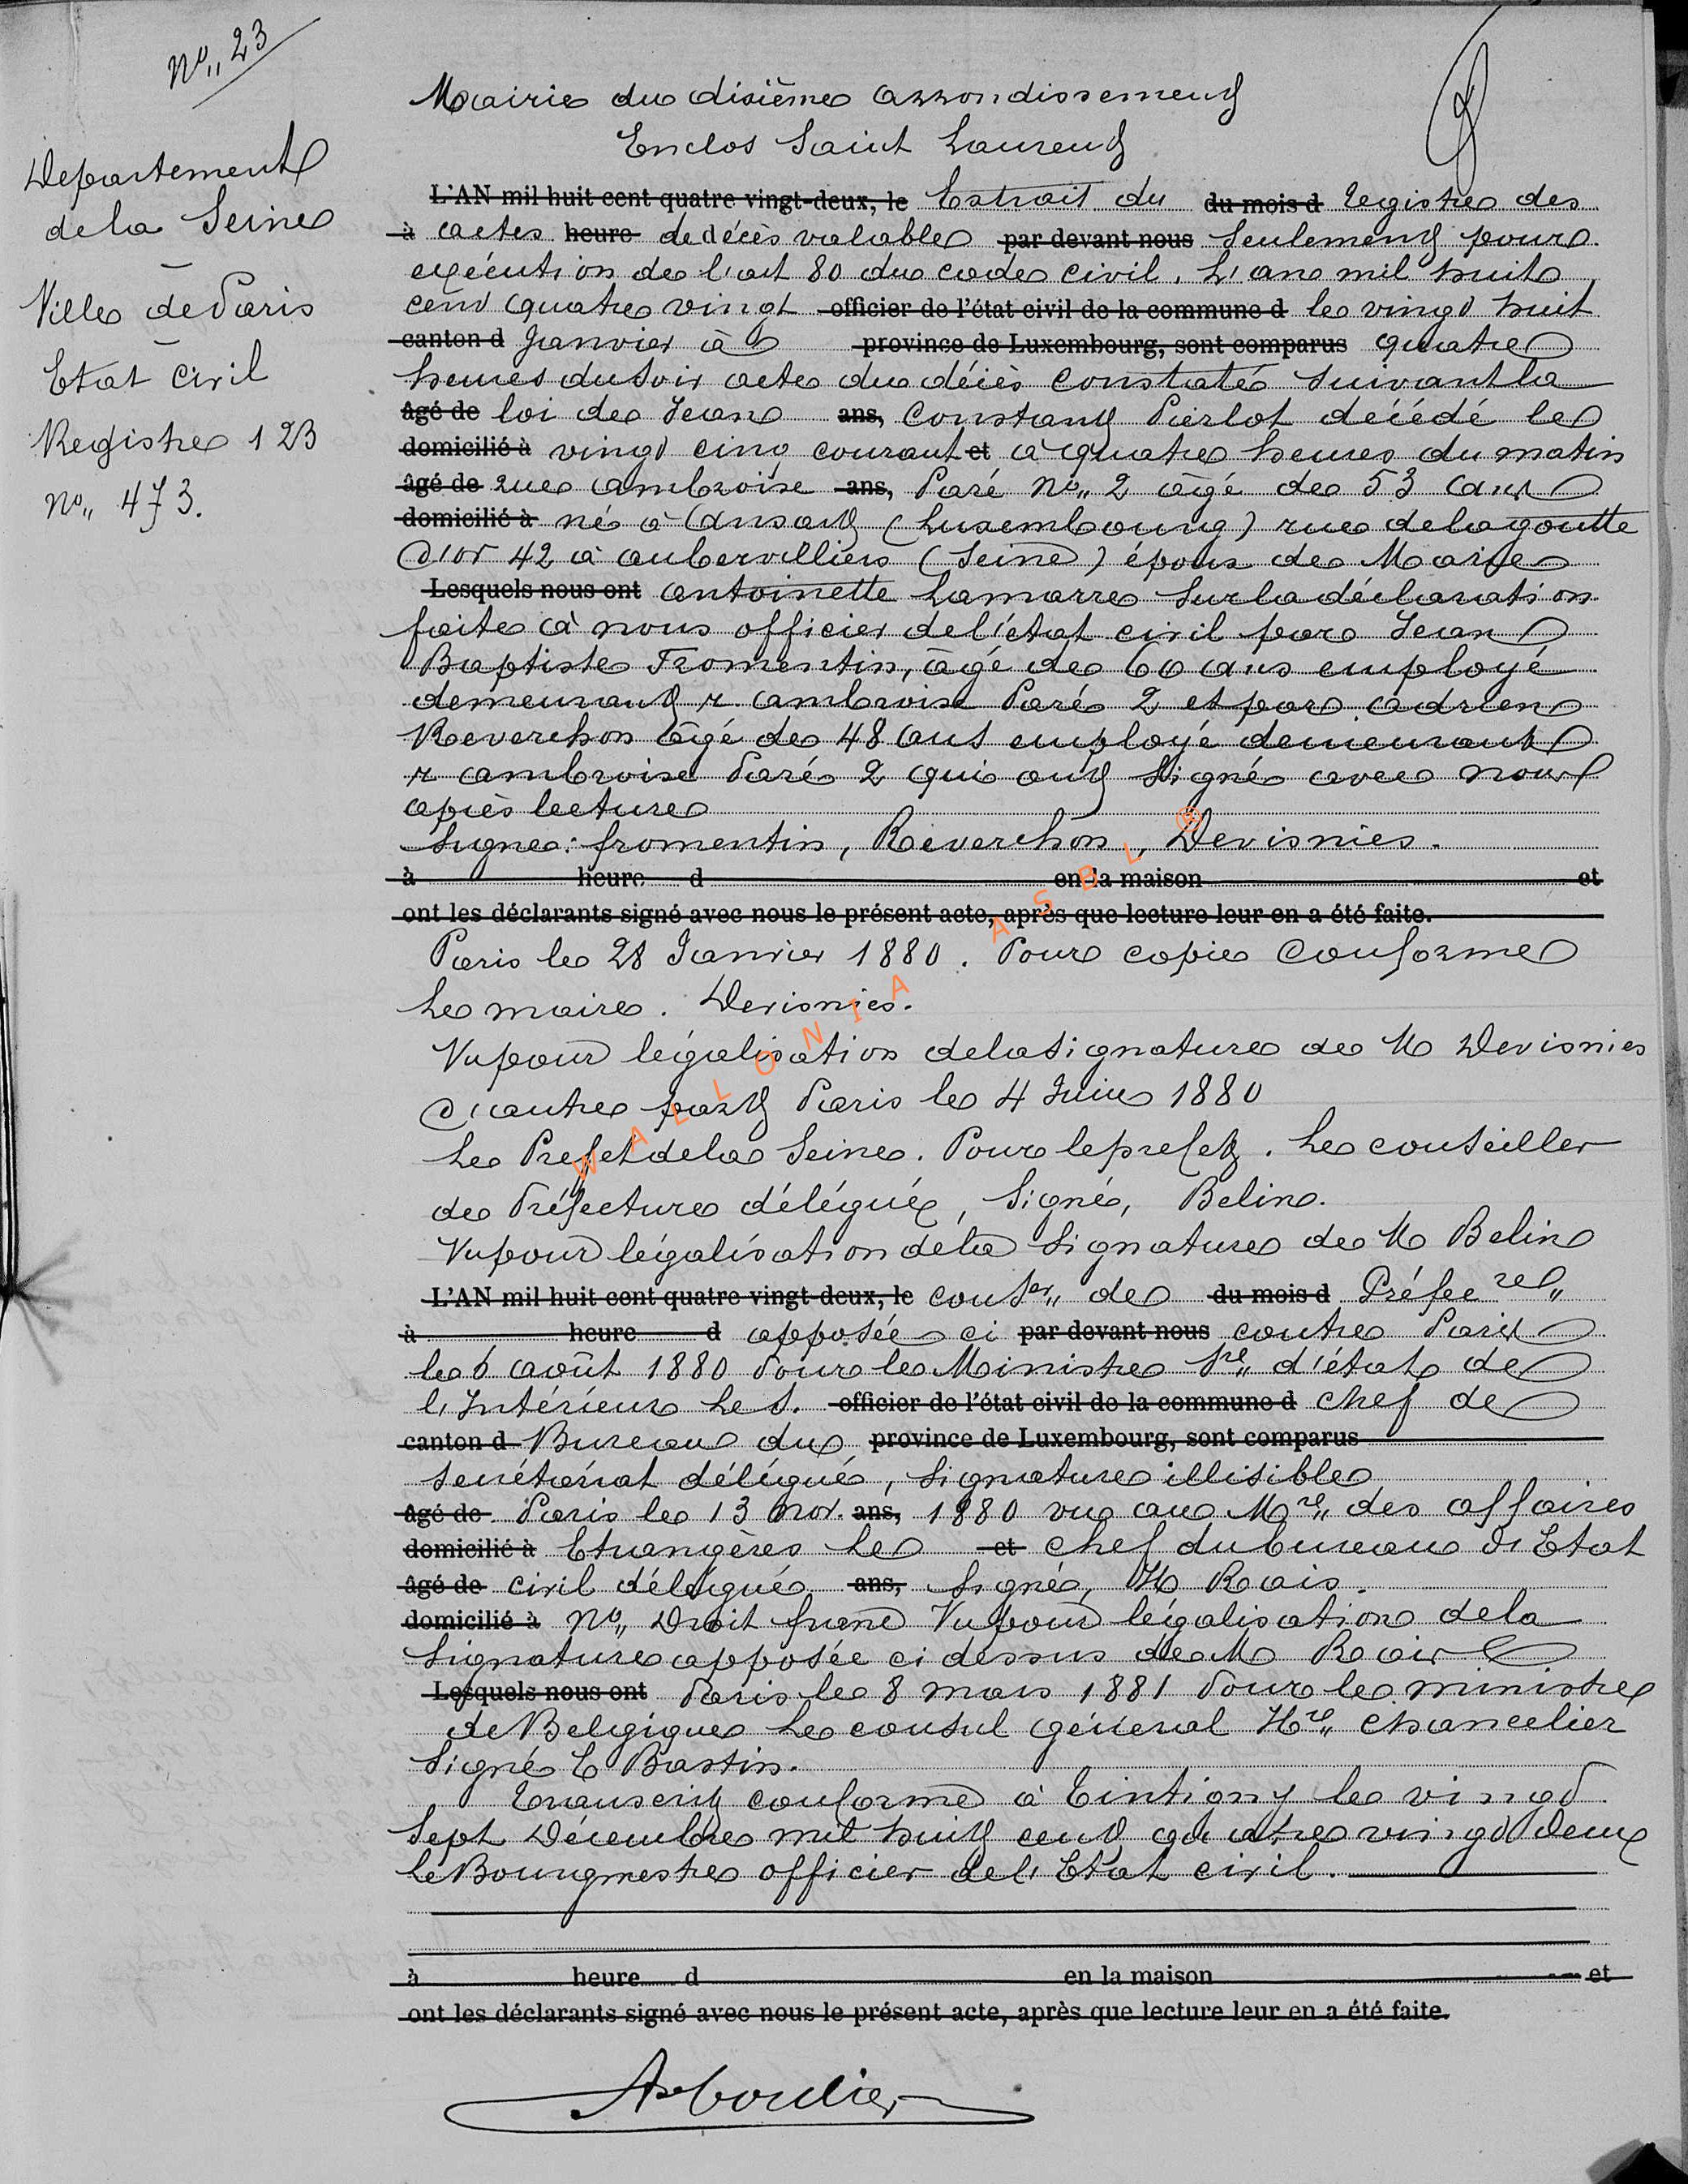 No,, 23
Departement
de la Seine
Ville de Paris
Etat Civil
Registre 123
No,, 473.
Mairie du dixième arrondissement
Enclos Saint Laurent
L'AN mil huit cent quatre vingt-deux, le Extrait du du mois d registre des
à actes heure de décès valable par devant nous seulement pour
exécution de l'art 80 du code civil. L'an mil huit
cent quatre vingt officier de l'état civil de la commune d le vingt huit
canton d Janvier à province de Luxembourg, sont comparus quatre
heures du soir acte du décès constaté suivant la
âgé de loi de Jean ans, Constant Pierlot décédé le
domicilié à vingt cinq courant et à quatre heures du matin
âgé de rue ambroise ans, Paré No,, 2 âgé de 53 ans
domicilié à né à Ansart (Luxembourg) rue de la goutte
d'or 42 à aubervilliers (Seine) époux de Marie
Lesquels nous ont antoinette Lamarre sur la déclaration
faite à nous officier de l'état civil par Jean
Baptiste Fromentin, âgé de 60 ans employé
demeurant r. ambroise Paré 2 et par adrien
Reverchon âgé de 48 ans employé demeurant
r ambroise Paré 2 qui ont signé avec nous
après lecture
Signé: fromentin, Reverchon, Devisnies.
à heure d en la maison et
ont les déclarants signé avec nous le présent acte, après que lecture leur en a été faite.
Paris le 28 Janvier 1880. Pour copie conforme
Le maire. Devisnies.
Vu pour légalisation de la signature de M Devisnies
d'autre part Paris le 4 Juin 1880
Le Prefet de la Seine. Pour le prefet. Le conseiller
de Préfecture délégué, Signé, Belin.
Vu pour légalisation de la signature de M Belin
L'AN mil huit cent quatre vingt-deux, le conser,, de du mois d Préfec re,,
à heure d apposée ci par devant nous contre Paris
le 6 août 1880 Pour le Ministre Sre,, d'état de
l'Intérieur Le S. officier de l'état civil de la commune d chef de
canton d Bureau du province de Luxembourg, sont comparus
secrétariat délégué, signature illisible
âgé de Paris le 13 nov. ans, 1880 vu au Mre,, des affaires
domicilié à Etrangères Le et chef du bureau d'Etat
âgé de civil délégué ans, Signé, H Rais.
domicilié à No,, Droit Vu pour légalisation de la
signature apposée ci dessus de M Rais
Lesquels nous ont Paris le 8 mars 1881 Pour le ministre
de Belgique Le consul général Hre,, chancelier
Signé E Bastin.
Transcrit conforme à Tintigny le vingt
Sept Décembre mil huit cent quatre vingt deux
Le Bourgmestre officier de l'Etat civil.
à heure d en la maison et
ont les déclarants signé avec nous le présent acte, après que lecture leur en a été faite.
WALLONIA ASBL ®